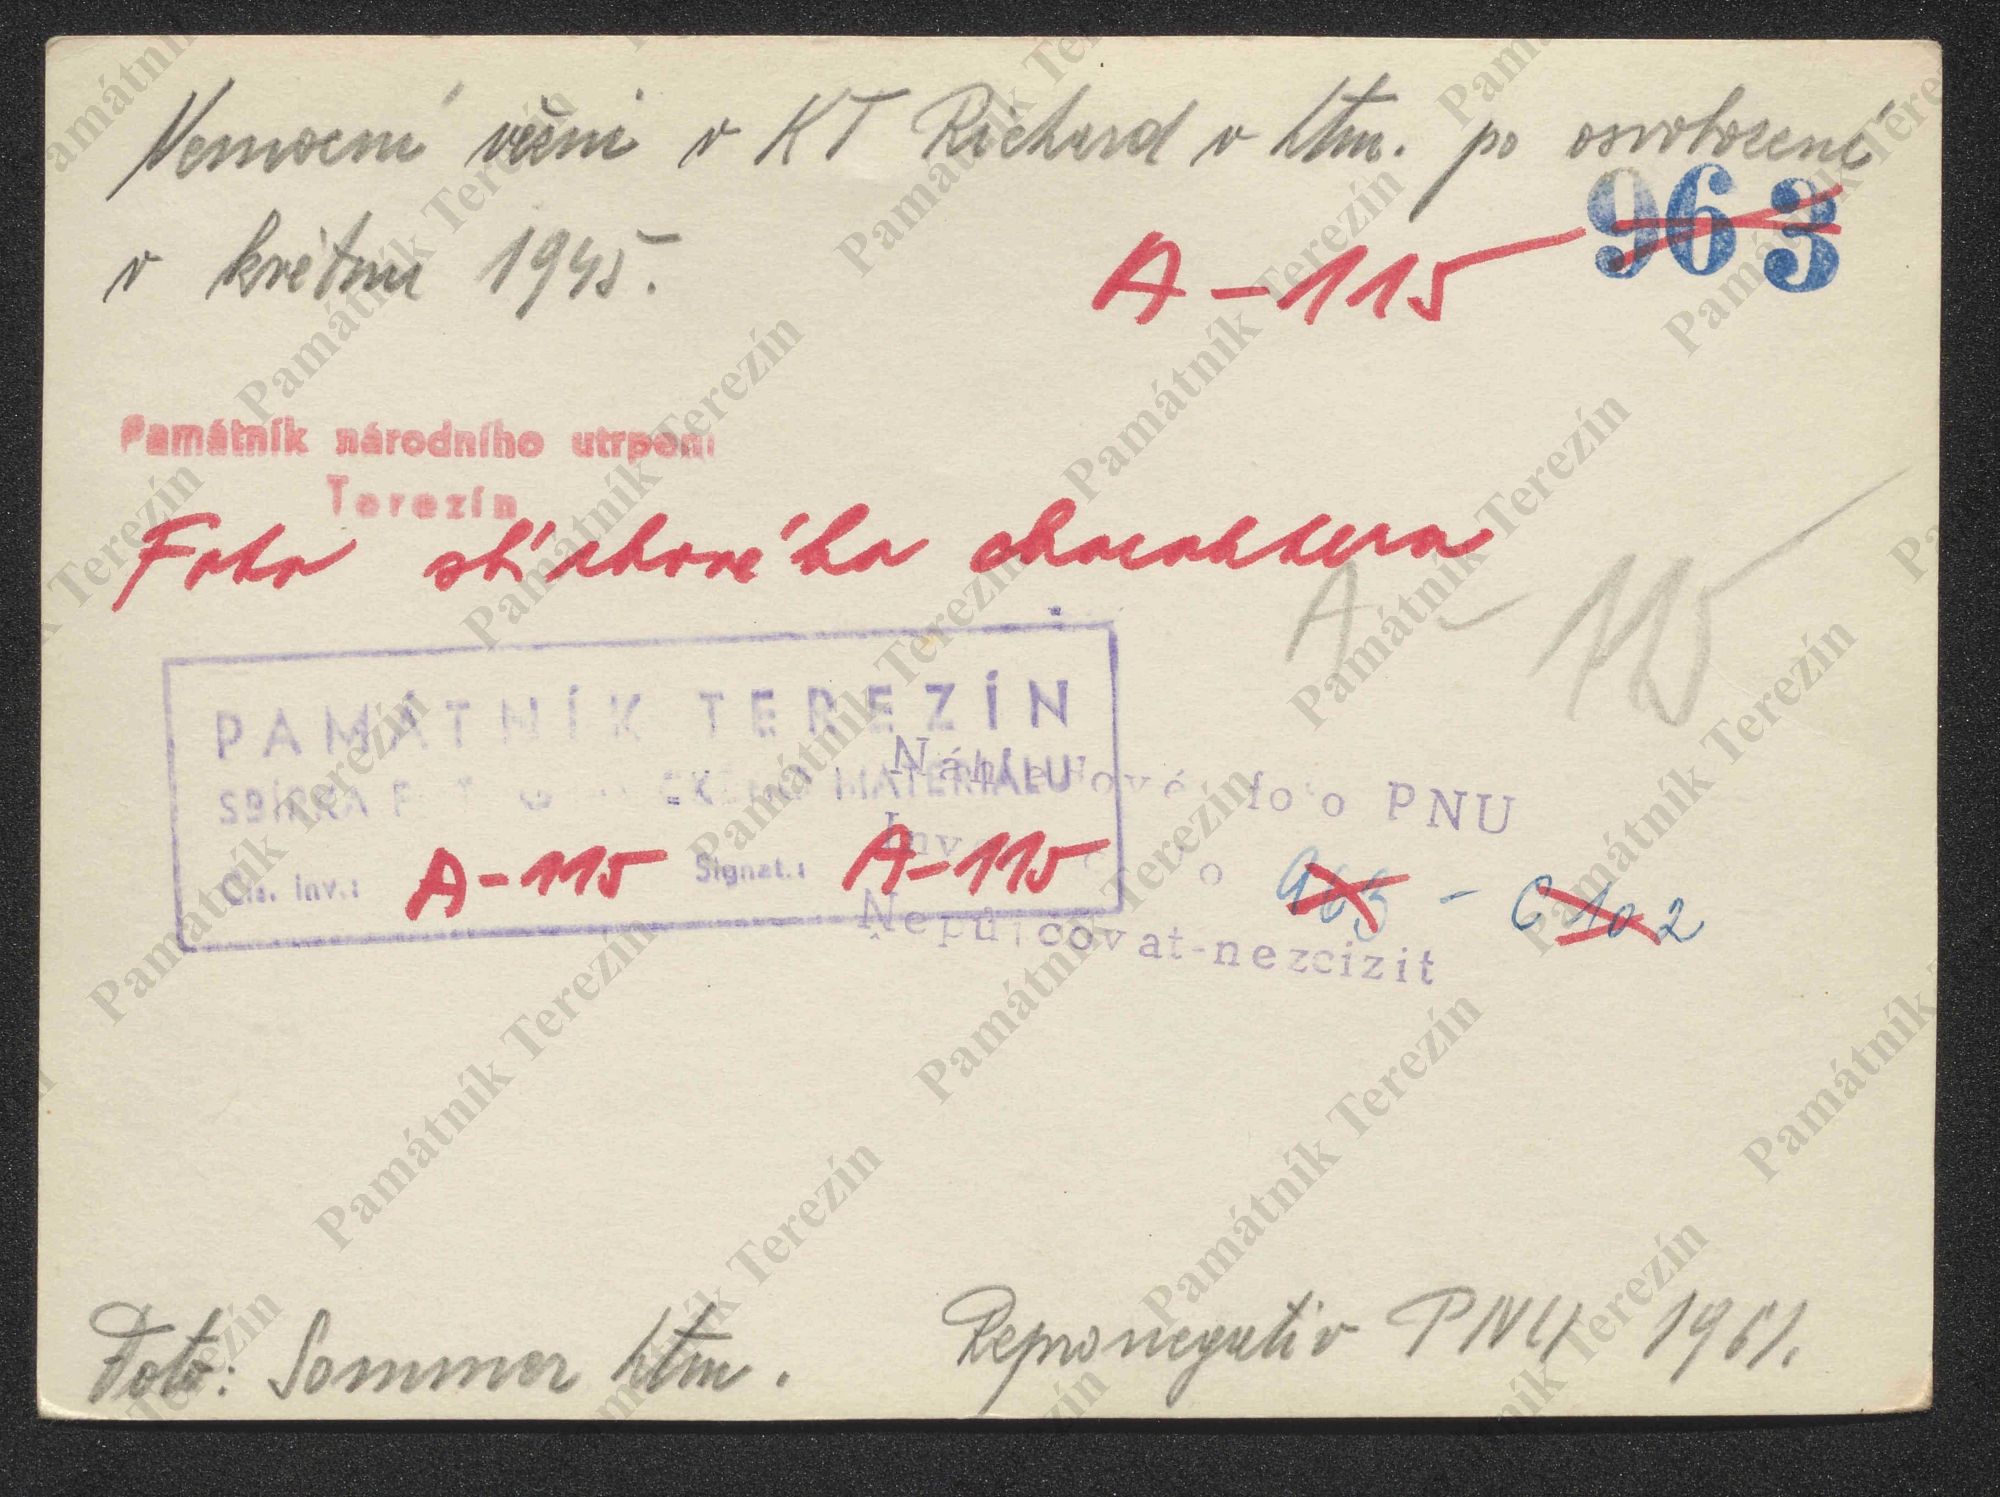 Nemocní vězni v KT Richard v Ltm. po osvobození
963
v květnu 1945.
A-115
Památník národního utrpení
Terezín
Foto sbírkového charakteru
A-115
PAMÁTNÍK TEREZÍN
SBÍRKA MATERIÁLU
Náhledové foto PNU
Čís. inv.: A-115 Signat.: A-115
Inv. 963 - C 102
Nepůjčovat-nezcizit
Foto: Sommer Ltm.
Repronegativ PNU 1961.
Památník Terezín